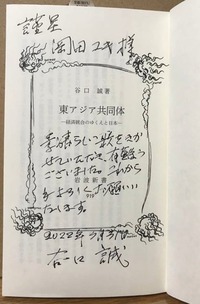 謹呈
岡田ユキ様
谷口 誠著
東アジア共同体
―経済統合のゆくえと日本―
素晴らしい歌をきか
せていただいて、有難う
ございました。これから
もよろしくお願い
いたします。
岩波新書
919
2022年3月
谷口 誠